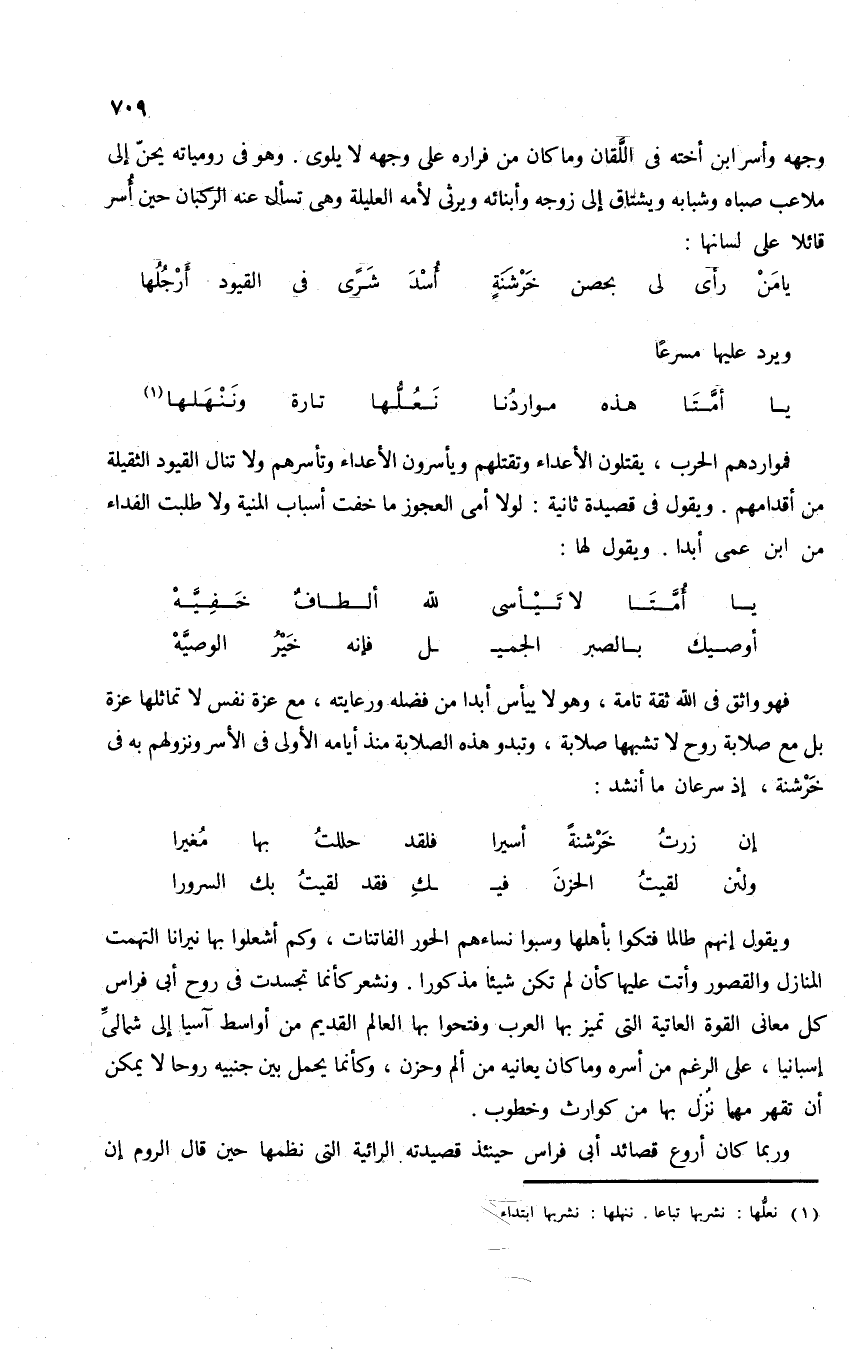 ٧٠٩
وجهه وأسر ابن أخته فى اللَّقان وماكان من فراره على وجهه لا يلوى . وهو فى رومياته يحنّ إلى
ملاعب صباه وشبابه ويشتاق إلى زوجه وأبنائه ويرثى لأمه العليلة وهى تسأل عنه الركبان حين أُسر
قائلا على لسانها :
يامَنْ رأى لى بحصن خَرْشَنَةٍ أُسْدَ شَرًى فى القيود أَرْجُلُها
ويرد عليها مسرعًا
يـا أمَّتَا هذه مواردُنا نَعُلُّها تارة ونَنْهَلها(١)
فمواردهم الحرب ، يقتلون الأعداء وتقتلهم ويأسرون الأعداء وتأسرهم ولا تنال القيود الثقيلة
من أقدامهم . ويقول فى قصيدة ثانية : لولا أمى العجوز ما خفت أسباب المنية ولا طلبت الفداء
من ابن عمى أبدا . ويقول لها :
يـا أُمَّتَا لا تَيْأسى لله ألطافٌ خَفِيَّهْ
أوصيك بالصبر الجميـ ـل فإنه خَيْرُ الوصيَّهْ
فهو واثق فى الله ثقة تامة ، وهو لا ييأس أبدا من فضله ورعايته ، مع عزة نفس لا تماثلها عزة
بل مع صلابة روح لا تشبهها صلابة ، وتبدو هذه الصلابة منذ أيامه الأولى فى الأسر ونزولهم به فى
خَرْشنة ، إذ سرعان ما أنشد :
إن زرتُ خَرْشنةً أسيرا فلقد حللتُ بها مُغيرا
ولئن لقيتُ الحزنَ فيـ ـكِ فقد لقيتُ بك السرورا
ويقول إنهم طالما فتكوا بأهلها وسبوا نساءهم الحور الفاتنات ، وكم أشعلوا بها نيرانا التهمت
المنازل والقصور وأتت عليها كأن لم تكن شيئا مذكورا . ونشعر كأنما تجسدت فى روح أبى فراس
كل معانى القوة العاتية التى تميز بها العرب وفتحوا بها العالم القديم من أواسط آسيا إلى شمالىِّ
إسبانيا ، على الرغم من أسره وماكان يعانيه من ألم وحزن ، وكأنما يحمل بين جنبيه روحا لا يمكن
أن تقهر مهما نُزِّل بها من كوارث وخطوب .
وربما كان أروع قصائد أبى فراس حينئذ قصيدته الرائية التى نظمها حين قال الروم إن
(١) نعلُّها : نشربها تباعا . ننهلها : نشربها ابتداء